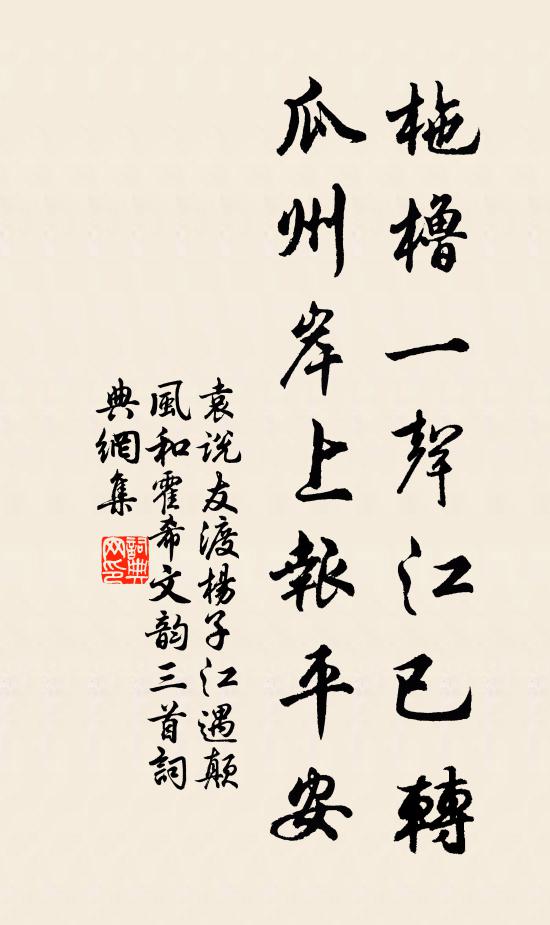 柂櫓一聲江已轉
瓜州岸上報平安
袁説友渡楊子江遇顛
風和霍希文韵三首詞
典網集
詞典
网印